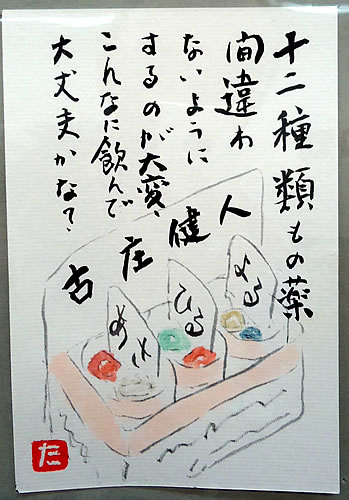 十二種類もの薬
間違わ
ないように
するのが大変、
こんなに飲んで
大丈夫かな？
古庄健人
あさ
ひる
よる
た